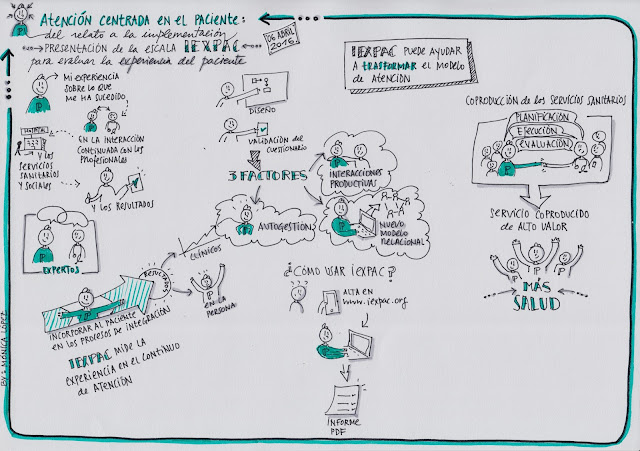 Atención centrada en el paciente:
del relato a la implementación
PRESENTACIÓN DE LA ESCALA IEXPAC
para evaluar la experiencia del paciente
06 ABRIL
2016.
IEXPAC PUEDE AYUDAR
A TRASFORMAR EL MODELO
DE ATENCIÓN
MI EXPERIENCIA
SOBRE LO QUE
ME HA SUCEDIDO
EN LA INTERACCIÓN
CONTINUADA CON LOS
PROFESIONALES
Y LOS
SERVICIOS
SANITARIOS
Y SOCIALES
Y LOS RESULTADOS
EXPERTOS
DISEÑO
VALIDACIÓN DEL
CUESTIONARIO
3 FACTORES
INTERACCIONES
PRODUCTIVAS
AUTOGESTIÓN
NUEVO
MODELO
RELACIONAL
RESULTADOS
CLÍNICOS
EN LA
PERSONA
INCORPORAR AL PACIENTE
EN LOS PROCESOS DE INTEGRACIÓN
IEXPAC MIDE LA
EXPERIENCIA EN EL CONTINUO
DE ATENCIÓN
¿CÓMO USAR IEXPAC?
ALTA EN
www.iexpac.org
INFORME
PDF
COPRODUCCIÓN DE LOS SERVICIOS SANITARIOS
PLANIFICACIÓN
EJECUCIÓN
EVALUACIÓN
SERVICIO COPRODUCIDO
DE ALTO VALOR
MÁS
SALUD
BY: MÓNICA LÓPEZ